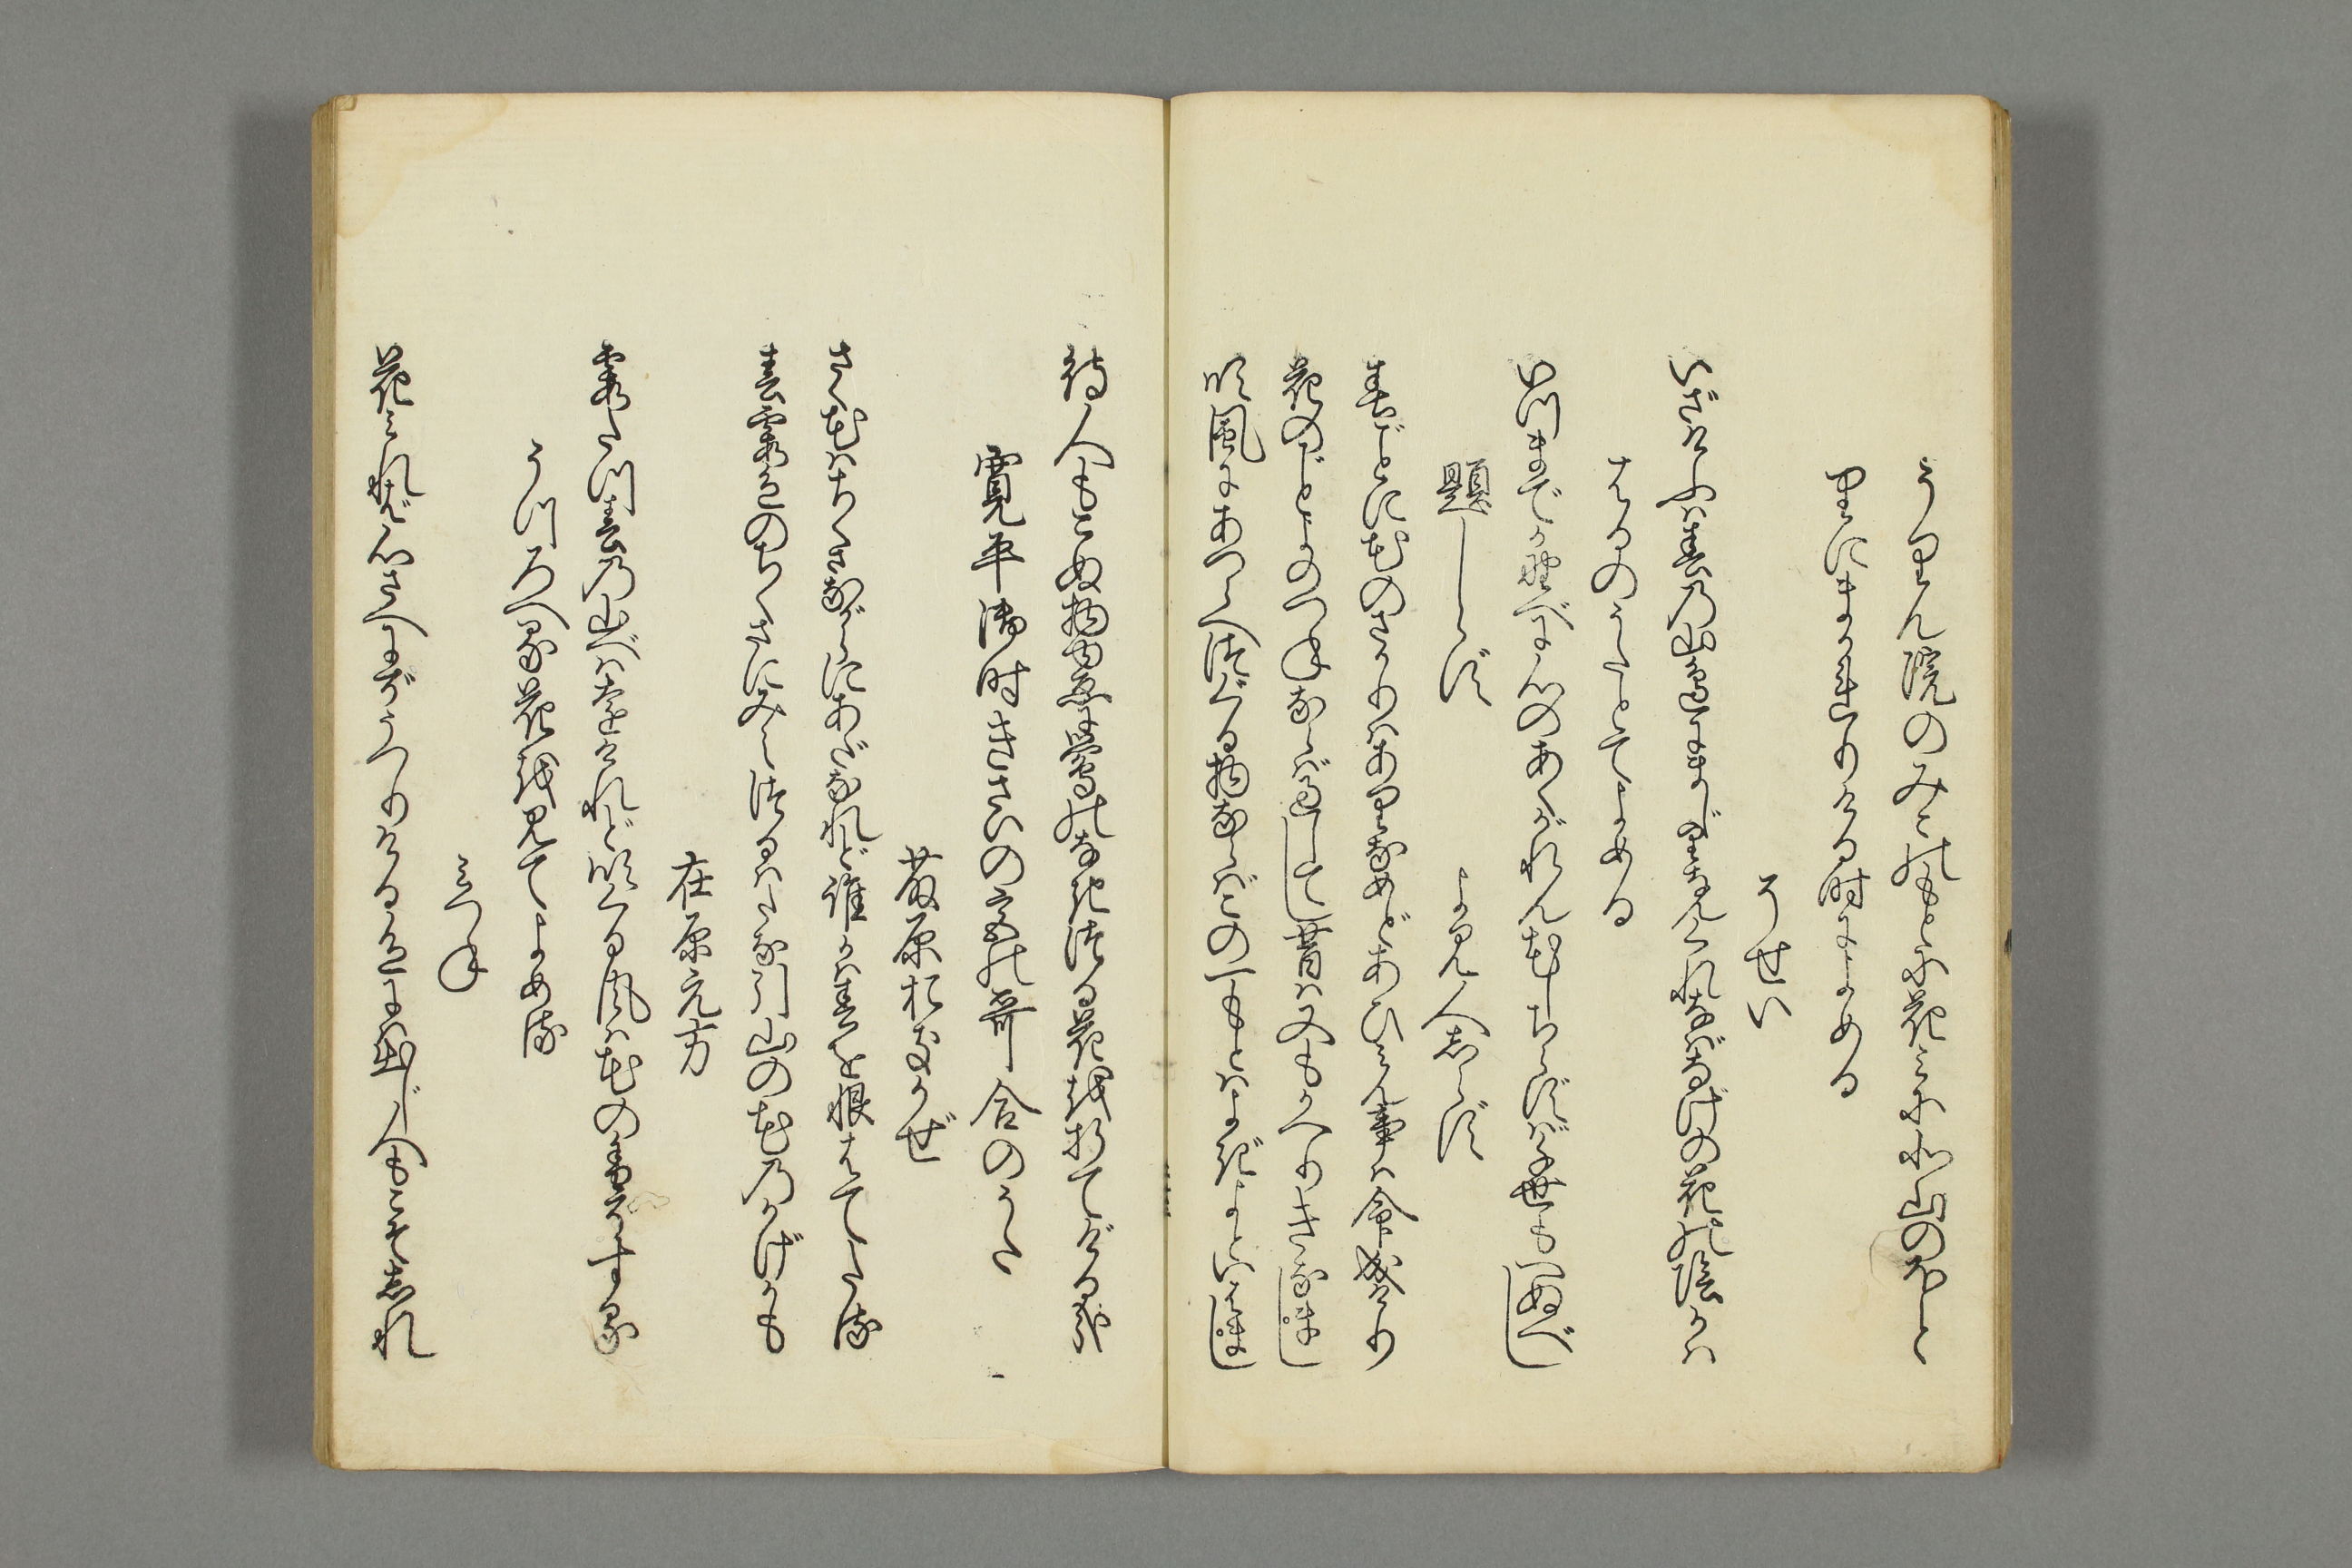 うりん院のみこのもとに花みに北山のほと
りにまかれりける時によめる
そせい
いざけふは春の山邊にまじりなんくれなばなげの花の陰かは
はるのうたとてよめる
いつまでか野べに心のあくがれん花しちらずば千世もへぬべし
題しらず
よみ人しらず
春ごとに花のさかりはありなめどあひみん事は命成けり
花のごとよのつねならば過して昔は又もかへりきなまし
吹風にあつらへつくる物ならばこの一もとはよぎよといはまし
待人もこぬ物ゆゑに鶯のなきつる花を折てげる哉
寛平御時きさいの宮の哥合のうた
藤原おきかぜ
さく花はちくさながらにあだなれど誰かは春を恨はてたる
春霞色のちくさにみえつるはたな引山の花のかげかも
在原元方
霞たつ春の山べは遠けれど吹くる風は花の香ぞする
うつろへる花を見てよめる
みつね
花みれば心さへにぞうつりける色には出じ人もこそしれ